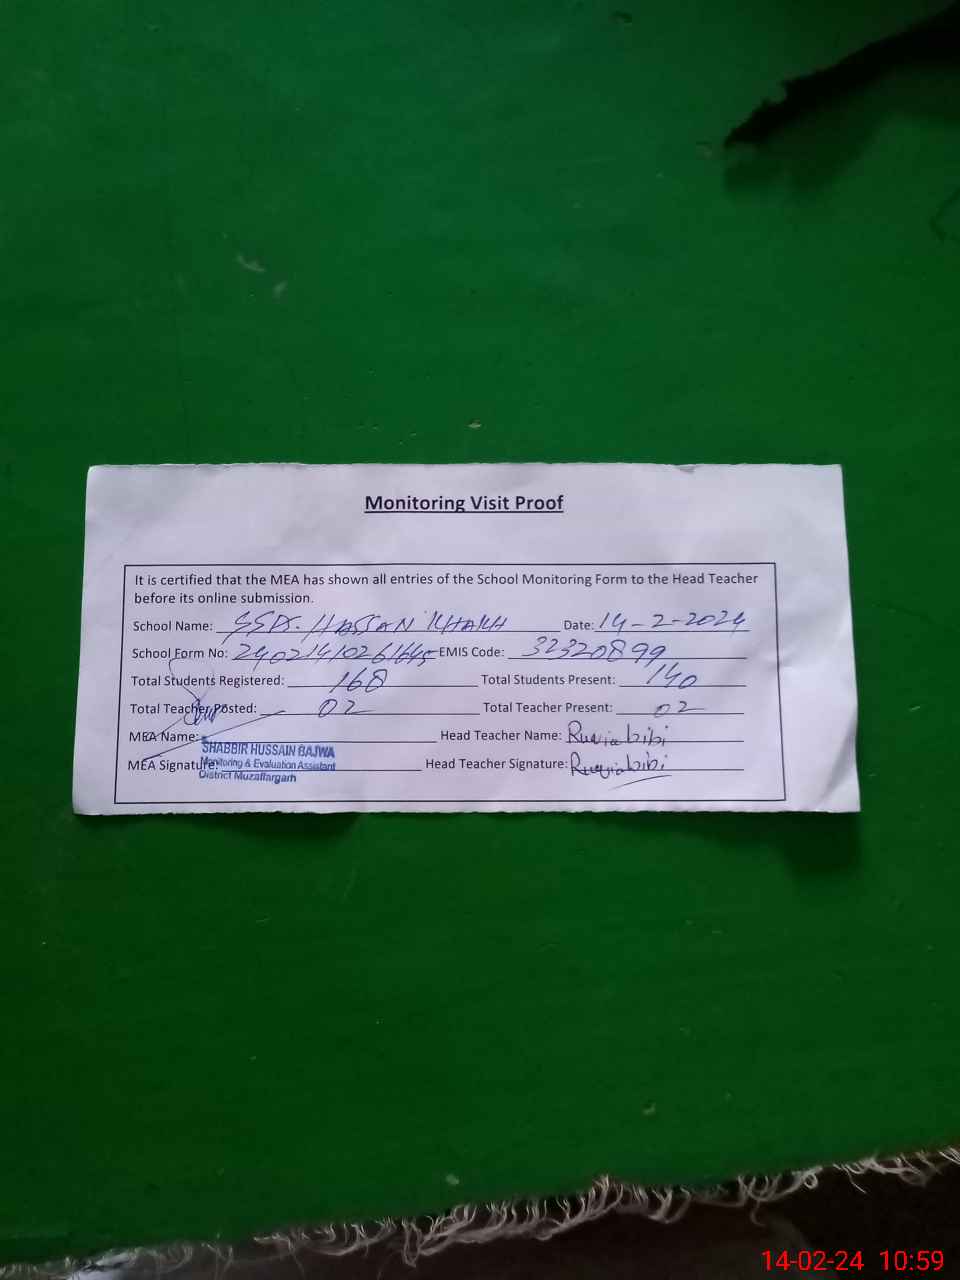 Monitoring Visit Proof
It is certified that the MEA has shown all entries of the School Monitoring Form to the Head Teacher
before its online submission.
School Name: HASSAN KHAKH Date: 14-2-2024
School Form No: EMIS Code: 32320899
Total Students Registered: 168 Total Students Present: 140
Total Teacher Posted: 02 Total Teacher Present: 02
MEA Name: Head Teacher Name: bibi
SHABBIR HUSSAIN BAJWA
Monitoring & Evaluation Assistant
MEA Signature: Head Teacher Signature: bibi
District Muzaffargarh
14-02-24 10:59